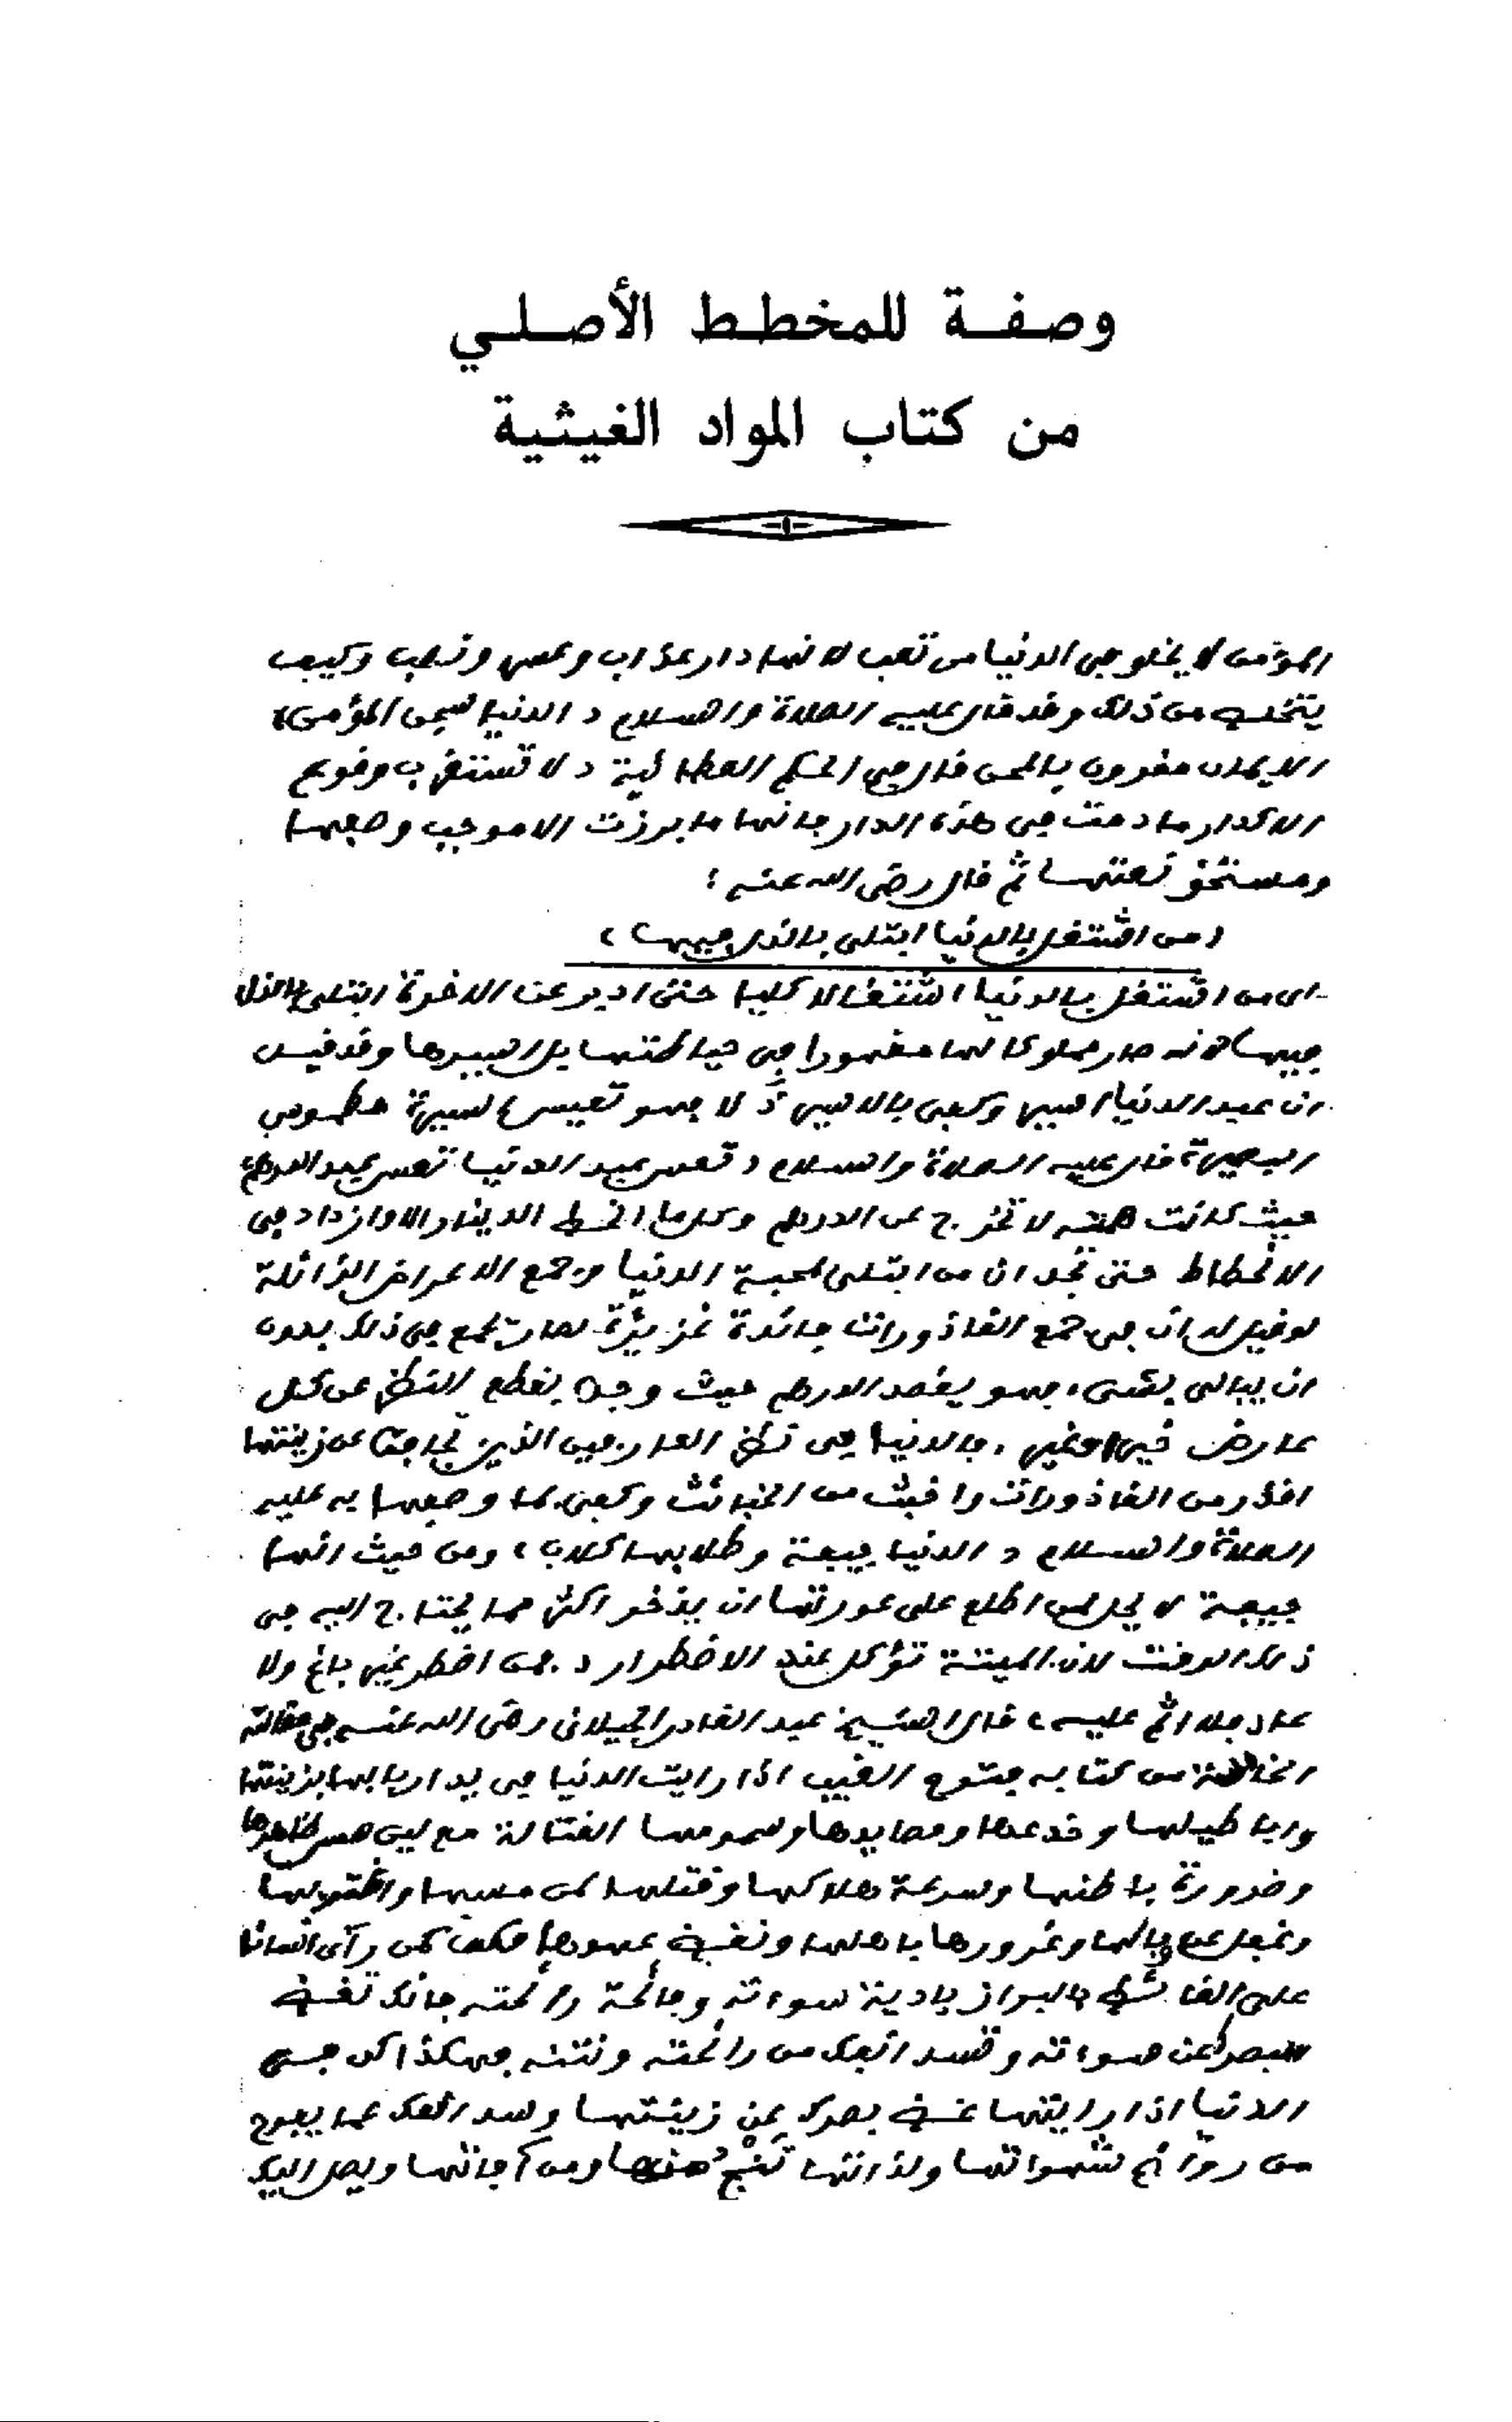 وصفة للمخطط الأصلي
من كتاب المواد الغيثية
المؤمن لا يخلو في الدنيا من تعب لانها دار عذاب ومحن ونصب وكيف
يتخلص من ذلك وقد قال عليه الصلاة والسلام « الدنيا سجن المؤمن»
الايمان مقرون بالمحن قال في الحكم العطائية « لا تستغرب وقوع
الاكدار ما دمت في هذه الدار فانها ما ابرزت الا موجب وصفها
ومستحق نعتها ثم قال رضي الله عنه :
( من اشتغل بالدنيا ابتلى بالذل فيها )
اى من اشتغل بالدنيا اشتغالا كليا حتى ادبر عن الاخرة ابتلى بالذل
فيها لانه صار مملوكا لها مقهورا في حبالتها بل اسيرها وقد قيل
ان عبد الدنيا اسير وكفى بالاسير ذلا فهو تعيس السيرة مطموس
البصيرة، قال عليه الصلاة والسلام « تعس عبد الدنيا تعس عبد الدرهم»
حيث كانت همته لا تخرج عن الدرهم وكلما انحط الدينار الا وازداد في
الانحطاط حتى تجد ان من ابتلى بمحبة الدنيا وجمع الاعراض الزائلة
لو قيل له ان في جمع القاذورات فائدة غزيرة لصار يجمع في ذلك بدون
ان يبالي بشىء، فهو يقصد الدرهم حيث وجد بقطع النظر عن كل
عارض خير او غير، فالدنيا في نظر العارفين الذين تجافوا عن زينتها
اقذر من القاذورات واخبث من الخبائث وكفى بما وصفها به عليه
الصلاة والسلام « الدنيا جيفة وطلابها كلاب » ومن حيث انها
جيفة لا يحل لمن اطلع على عورتها ان يدخر اكثر مما يحتاج اليه في
ذلك الوقت لان الميتة تؤكل عند الاضطرار « فمن اضطر غير باغ ولا
عاد فلا اثم عليه » قال الشيخ عبد القادر الجيلانى رضى الله عنه في مقالته
من كتابه فتوح الغيب اذا رايت الدنيا في يد اربابها بزينتها
واباطيلها وخدعها ومصايدها وسمومها القتالة مع لين مس ظاهرها
وضرورة باطنها وسرعة هلاكها وقتلها لمن مسها واغتر بها
وغفل عن وبالها وغرورها باهلها ونقض عهودها فكن كمن رأى انسانا
على الغائط بالبراز بادية سوءته وفائحة رائحته فانك تغض
بصرك عن سوءته وتسد انفك من رائحته ونتنه فهكذا كن في
الدنيا اذا رايتها غض بصرك عن زينتها وسد انفك عما يفوح
من روائح شهواتها ولذاتها تنج منها ومن آفاتها ويصل اليك